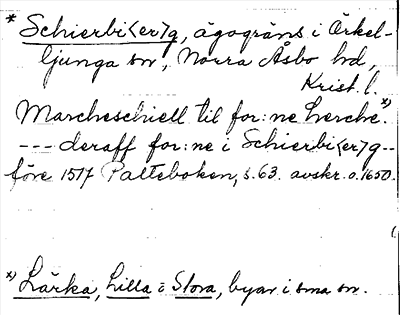 * Schierbi<er>g, ägogräns i Örkel-
ljunga sn, Norra Åsbo hd,
Krist. l.
Marcheschiell til for:ne Lerche.*)
--- deraff for:ne i Schierbi<er>g --
före 1517 Palteboken, s. 63. avskr. o. 1650.
*) Lärka, Lilla o Stora, byar i sma sn.